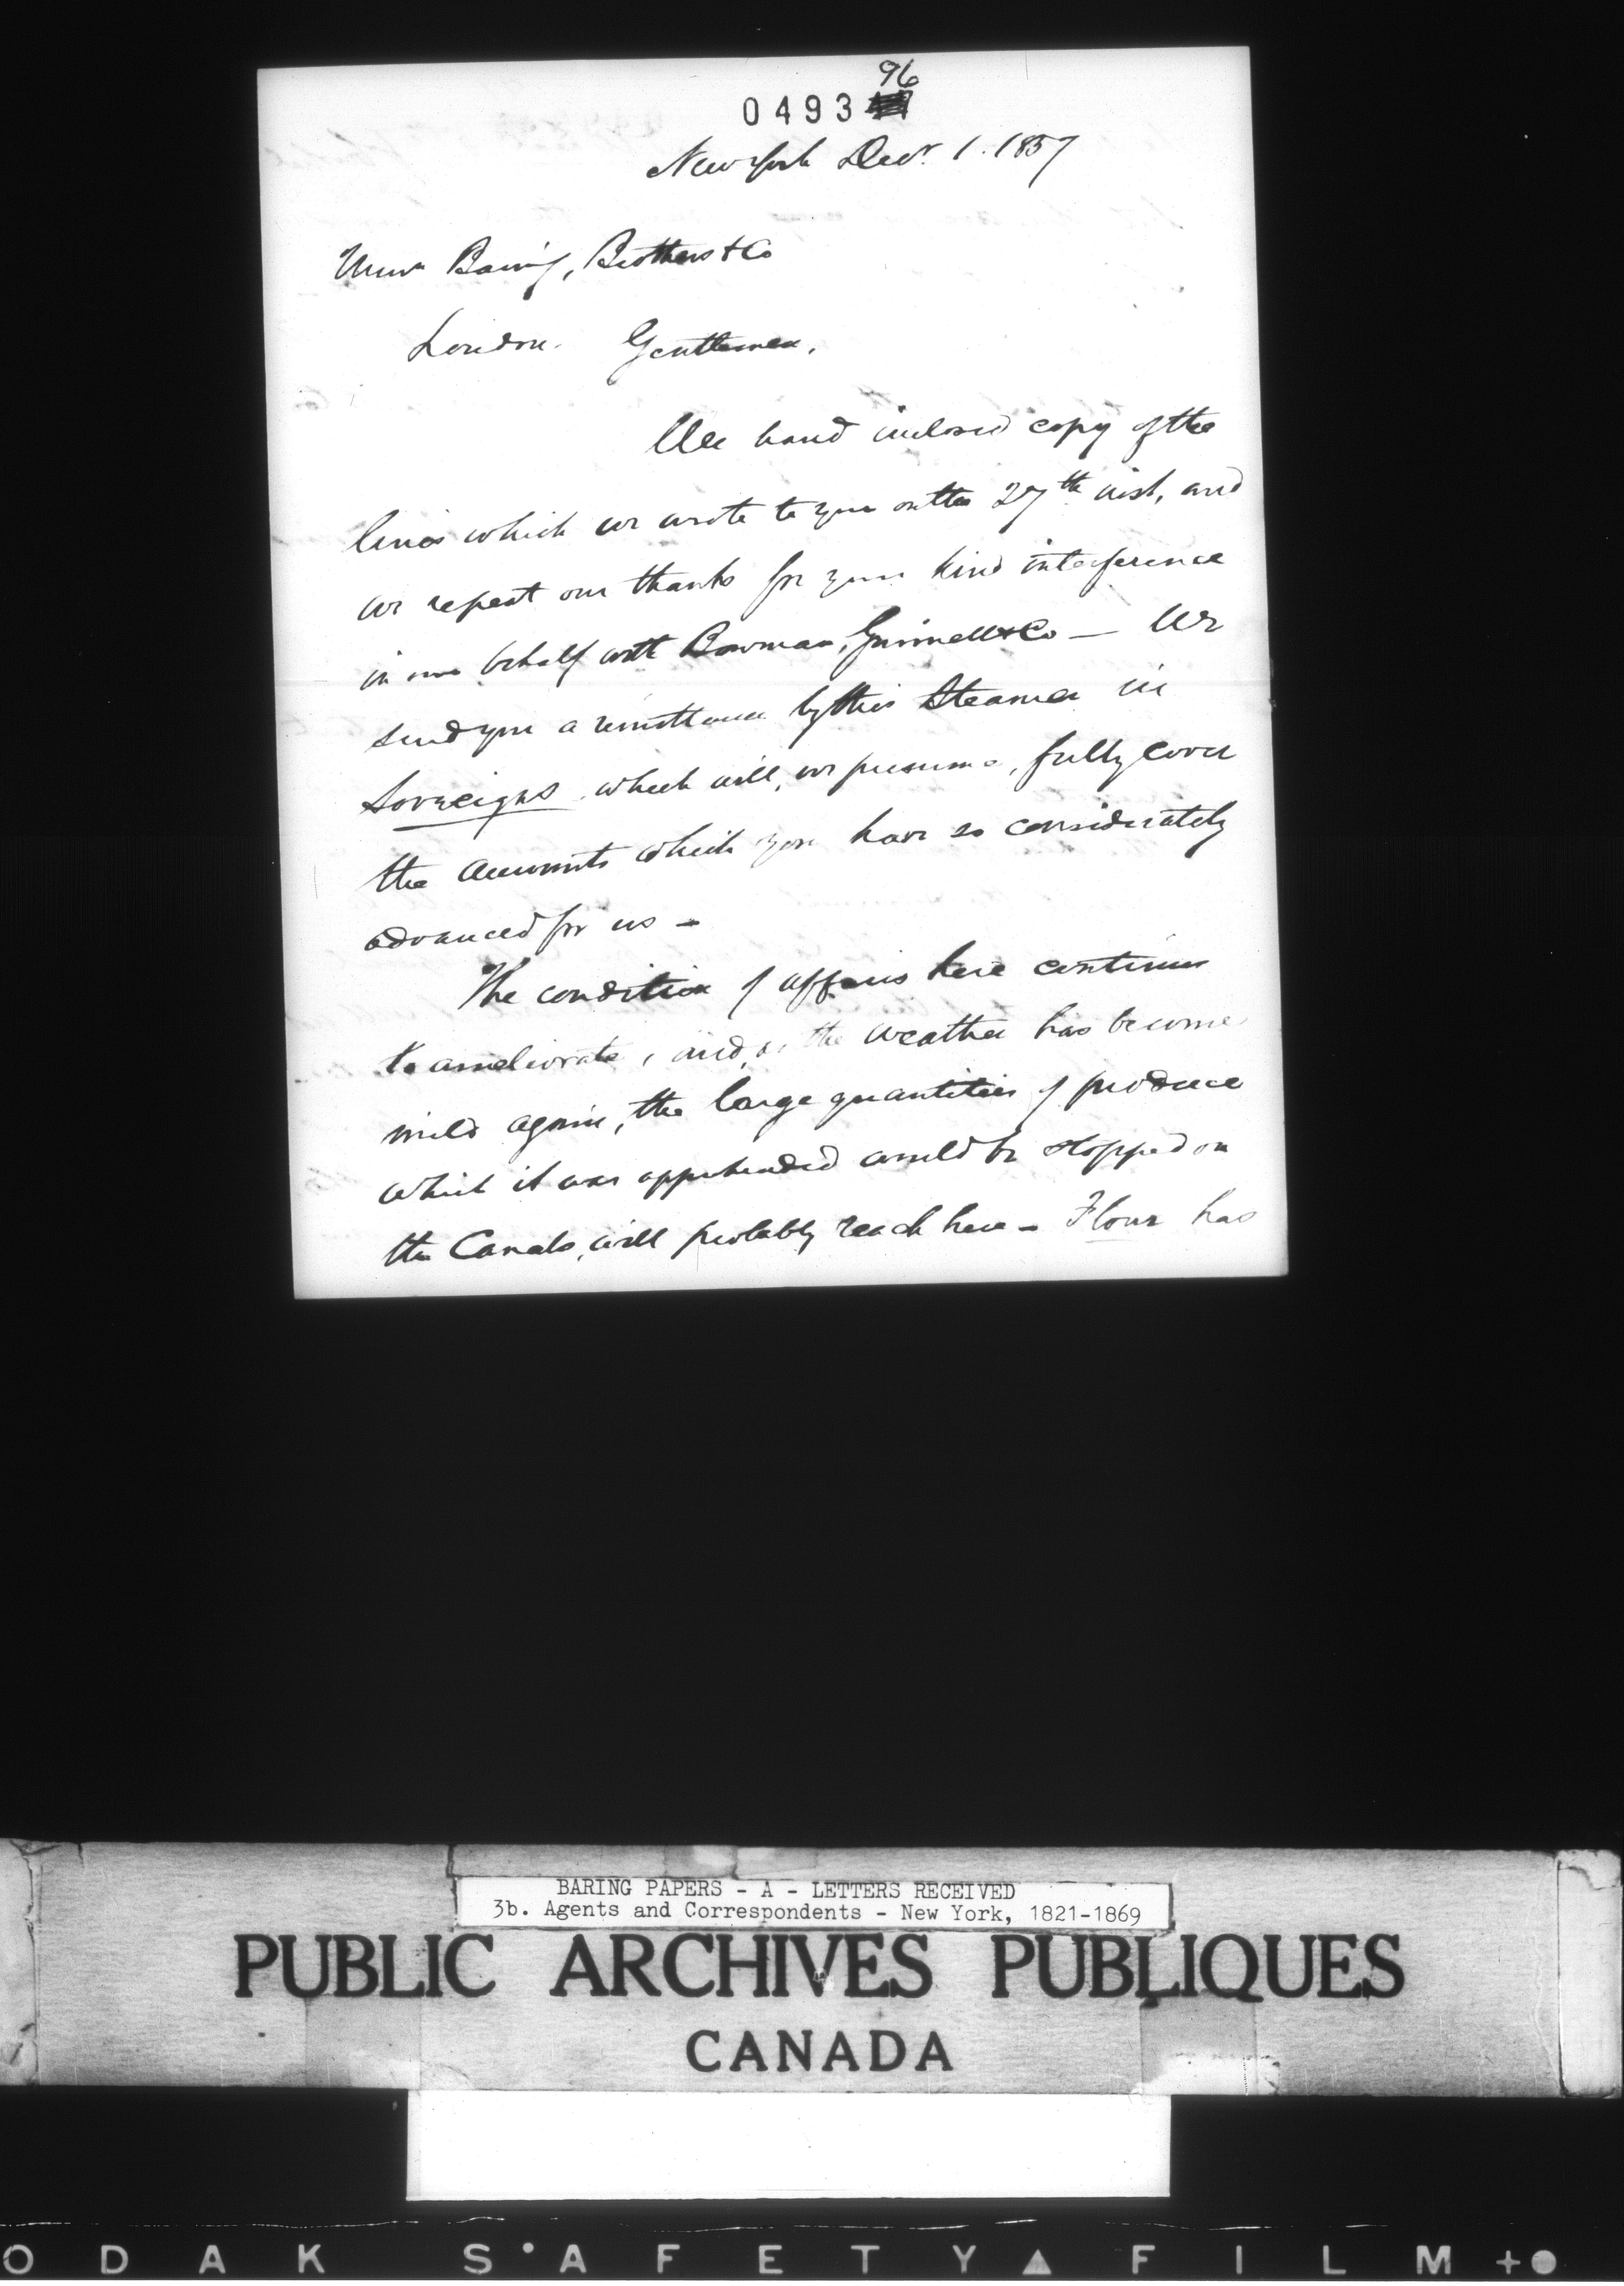 96
0493
New York Decr. 1. 1857
Messrs Baring, Brothers & Co
London. Gentlemen,
We hand inclosed copy of the
lines which we wrote to you on the 27th inst, and
we repeat our thanks for your kind interference
in our behalf with Bowman, Grinnell & Co — We
send you a remittance by this Steamer in
Sovreigns which will, we presume, fully cover
the amounts which you have so considerately
advanced for us —
The condition of affairs here continues
to ameliorate, and, as the weather has become
mild again, the large quantities of produce
which it was apprehended would be stopped on
the Canals, will probably reach here — Flour has
BARING PAPERS - A - LETTERS RECEIVED
3b. Agents and Correspondents - New York, 1821-1869
PUBLIC ARCHIVES PUBLIQUES
CANADA
ODAK S•AFETY▲FILM+●